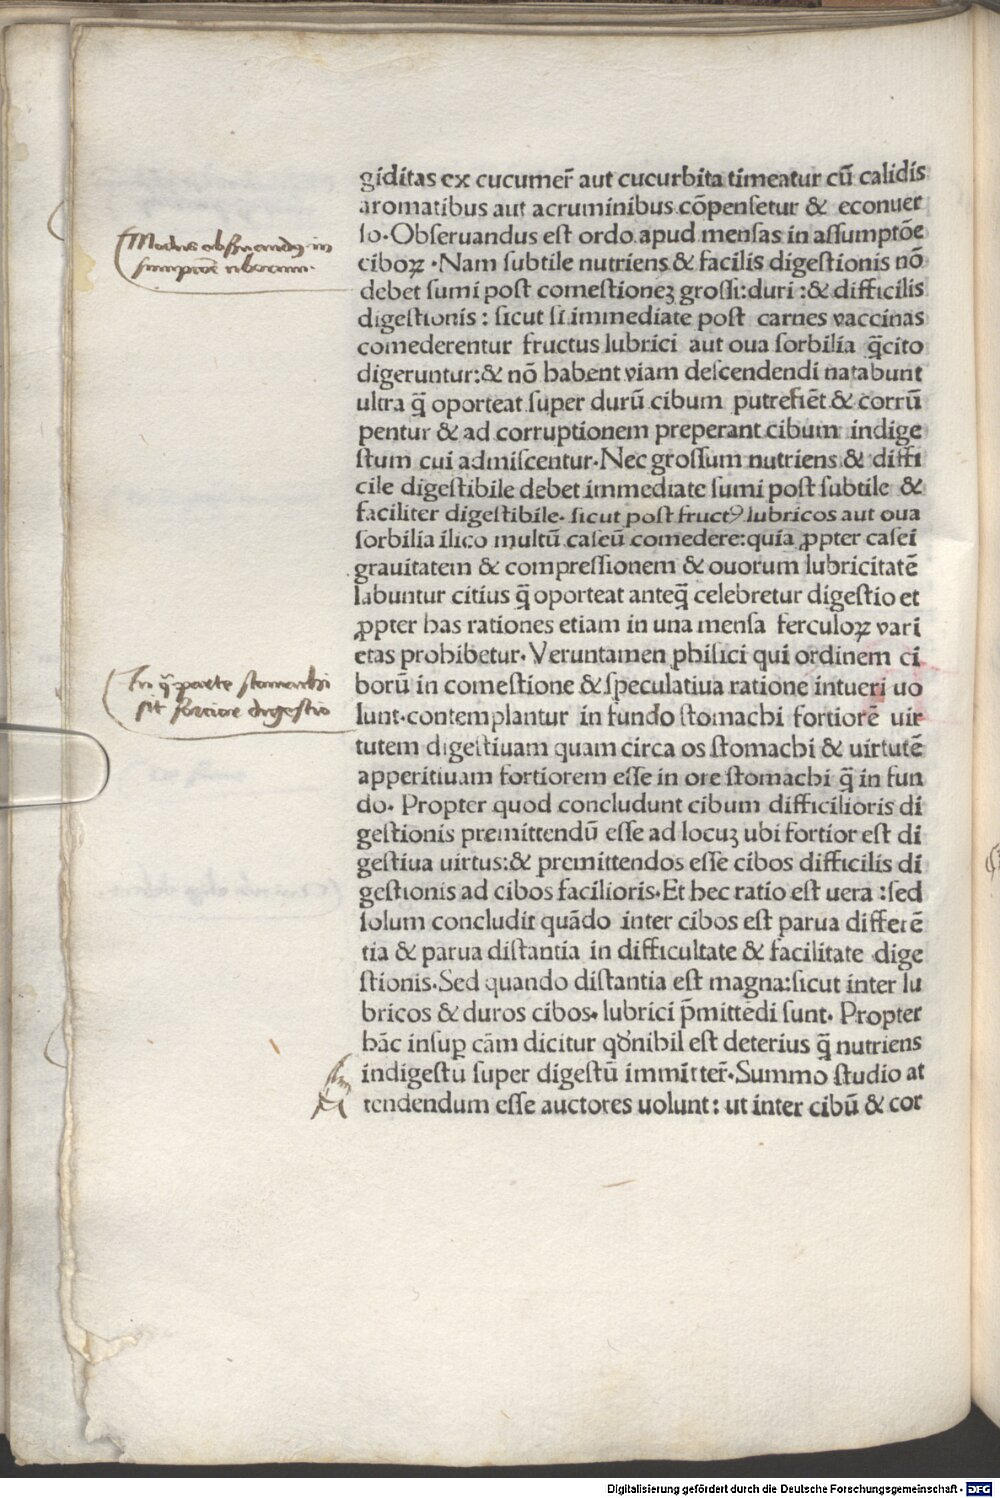 giditas ex cucumer̃ aut cucurbita timeatur cū calidis
aromatibus aut acruminibus cōpensetur & econuer
so. Obseruandus est ordo apud mensas in assumptōe
ciboꝝ. Nam subtile nutriens & facilis digestionis nō
debet sumi post comestioneȝ grossi: duri: & difficilis
digestionis: sicut si immediate post carnes vaccinas
comederentur fructus lubrici aut oua sorbilia q̄cito
digeruntur: & nō habent viam descendendi natabunt
ultra q̄ oporteat super durū cibum putrefiēt & corrū
pentur & ad corruptionem preperant cibum indige
stum cui admiscentur. Nec grossum nutriens & diffi
cile digestibile debet immediate sumi post subtile &
faciliter digestibile. sicut post fructꝰ lubricos aut oua
sorbilia ilico multū caseū comedere: quia ꝓpter casei
grauitatem & compressionem & ouorum lubricitatē
labuntur citius q̄ oporteat anteq̄ celebretur digestio et
ꝓpter has rationes etiam in una mensa ferculoꝝ vari
etas prohibetur. Veruntamen phisici qui ordinem ci
borū in comestione & speculatiua ratione intueri uo
lunt. contemplantur in fundo stomachi fortiorē uir
tutem digestiuam quam circa os stomachi & uirtutē
apperitiuam fortiorem esse in ore stomachi q̄ in fun
do. Propter quod concludunt cibum difficilioris di
gestionis premittendū esse ad locuȝ ubi fortior est di
gestiua uirtus: & premittendos esse cibos difficilis di
gestionis ad cibos facilioris. Et hec ratio est uera: sed
solum concludit quādo inter cibos est parua differē
tia & parua distantia in difficultate & facilitate dige
stionis. Sed quando distantia est magna: sicut inter lu
bricos & duros cibos. lubrici p̄mittēdi sunt. Propter
hāc insuꝑ cām dicitur qđ nihil est deterius q̄ nutriens
indigestū super digestū immitter̃. Summo studio at
tendendum esse auctores uolunt: ut inter cibū & cor
Modus obseruandꝰ in
sumptōe ciborum.
In q̄ parte stomachi
sit fortior digestio
Digitalisierung gefördert durch die Deutsche Forschungsgemeinschaft - DFG